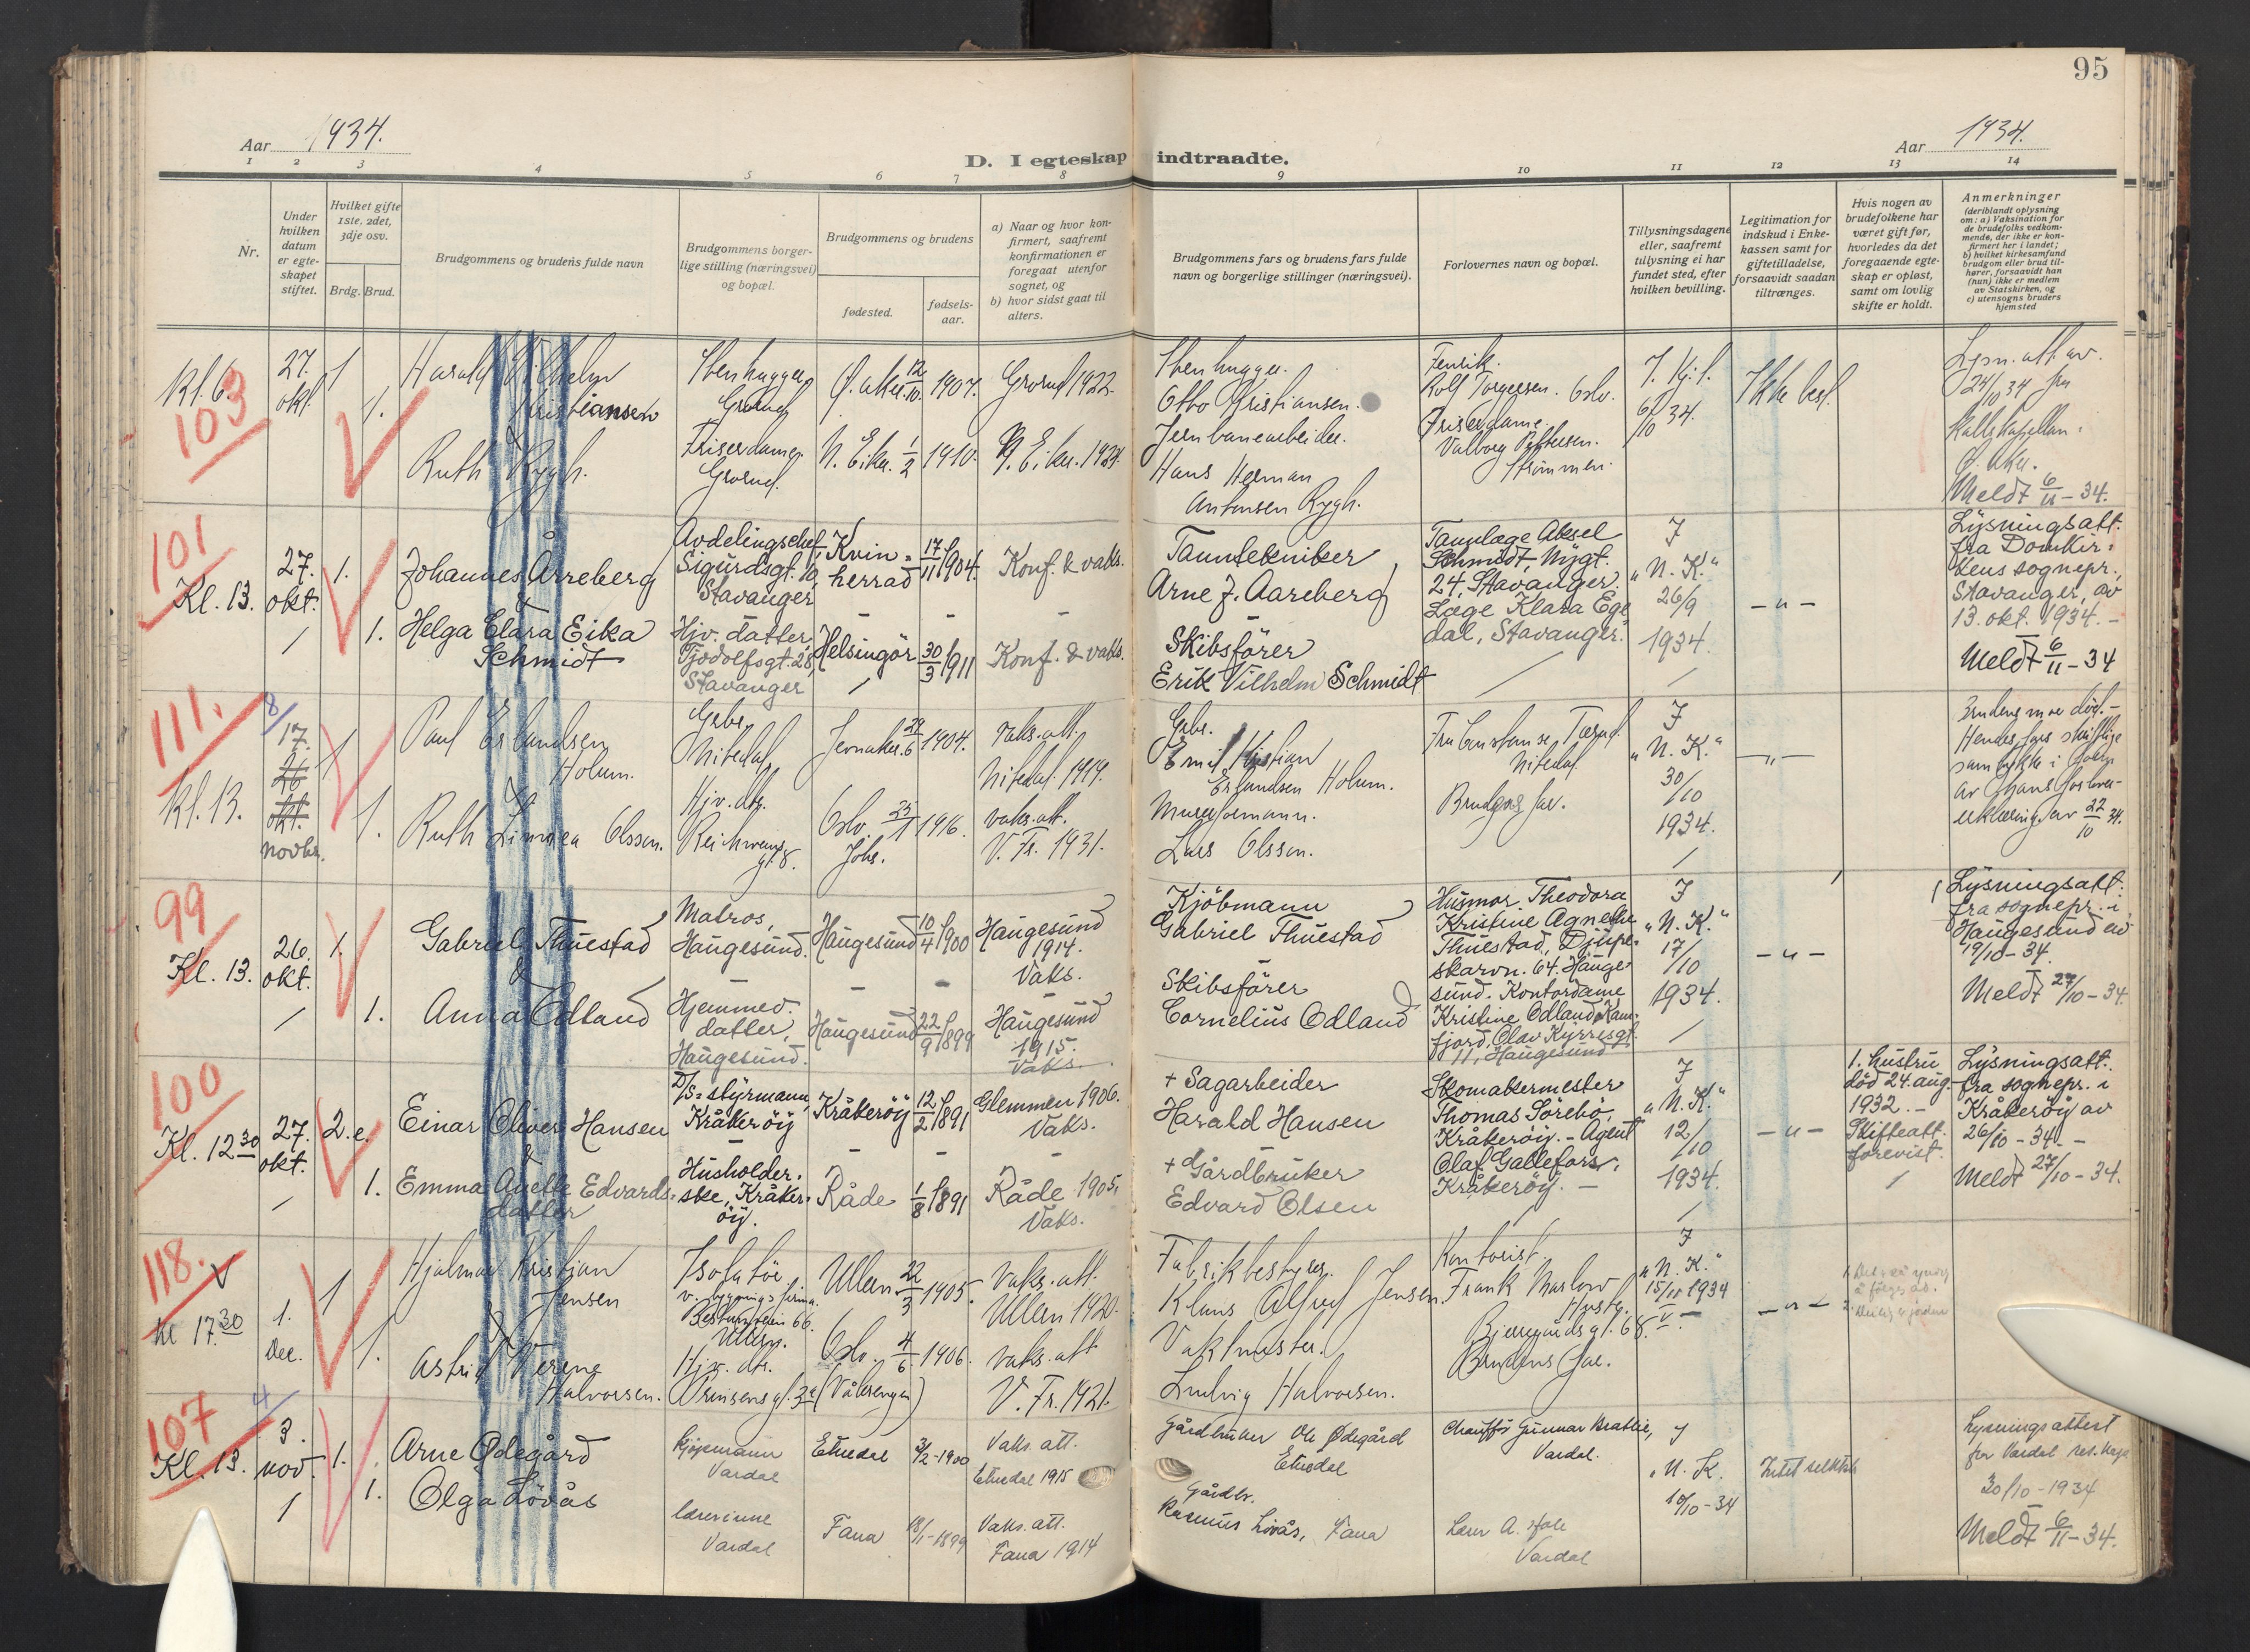 95
Aar 1934.
D. I egteskap indtraadte.
Aar 1934.
1 2 3 4 5 6 7 8 9 10 11 12 13 14
Nr.
Under
hvilken
datum
er egte-
skapet
stiftet.
Hvilket gifte
1ste, 2det,
3dje osv.
Brdg. Brud.
Brudgommens og brudens fulde navn
Brudgommens borger-
lige stilling (næringsvei)
og bopæl.
Brudgommens og brudens
fødested.
fødsels-
aar.
a) Naar og hvor kon-
firmert, saafremt
konfirmationen er
foregaat utenfor
sognet, og
b) hvor sidst gaat til
alters.
Brudgommens fars og brudens fars fulde
navn og borgerlige stillinger (næringsvei).
Forlovernes navn og bopæl.
Tillysningsdagene
eller, saafremt
tillysning ei har
fundet sted, efter
hvilken bevilling.
Legitimation for
indskud i Enke-
kassen samt for
giftetilladelse,
forsaavidt saadan
tiltrænges.
Hvis nogen av
brudefolkene har
været gift før,
hvorledes da det
foregaaende egte-
skap er opløst,
samt om lovlig
skifte er holdt.
Anmerkninger
(deriblandt oplysning
om: a) Vaksination for
de brudefolks vedkom-
mende, der ikke er kon-
firmert her i landet;
b) hvilket kirkesamfund
brudgom eller brud til-
hører, forsaavidt han
(hun) ikke er medlem
av Statskirken, og
c) utensogns bruders
hjemsted
Kl. 6.
103
27.
okt.
1
1.
Harald Vilhelm
Kristiansen
&
Ruth Rygh.
Stenhugger,
Grorud
Friserdame.
Grorud.
Ø. Aker. 12/10 1907.
N. Eiker. 1/2 1910.
Grorud 1922.
N. Eiker. 1924.
Stenhugger.
Otto Kristiansen.
Jernbanearbeider.
Hans Herman
Antonsen Rygh.
Fenrik.
Rolf Torgersen. Oslo.
Friserdame.
Valborg Pettersen.
Strømmen.
6/10 34.
Ikke besl.
Lysn. att. av.
24/10 34 fra
Ø. Aker.
Meldt 6/11 - 34.
101
Kl. 13.
27.
okt.
1.
1.
Johannes Årreberg
&
Helga Clara Eika
Schmidt
Avdelingschef
Sigurdsgt. 10,
Stavanger
Hjv. datter,
Tjodolfsgt. 28,
Stavanger
Kvin-
herrad
17/11 1904.
Helsingør
30/3 1911
Konf. & vaks.
Konf. & vaks.
Tanntekniker
Arne J. Aareberg
Skibsfører
Erik Vilhelm Schmidt
Tannlæge Aksel
Schmidt, Nygt.
24, Stavanger.
Læge Klara Ege
dal, Stavanger.
I
„N. K.“
26/9
1934.
- „ -
Lysningsatt.
fra Domkir-
kens sognepr.,
Stavanger, av
13. okt. 1934. -
Meldt 6/11 - 34
111.
Kl. 13.
8/
17.
26
okt.
novbr.
1
1.
Paul Erlandsen
Holum.
&
Ruth Linnea Olssen.
Gbr.
Nitedal,
Hjv. dtr.
Reichweins
gt. 8.
Jevnaker. 29/6 1904.
Oslo 25/1 1916.
Johs.
vaks. att.
Nitedal 1919.
vaks. att.
V. Fr. 1931.
Gbr.
Emil Kristian
Erlandsen Holum.
Murerformann.
Lars Olssen.
Fru Constanse Tærud.
Nitedal
Brudens far.
I
„N. K.“
30/10
1934.
- „ -
Brudens mor død. -
Hendes fars skriftlige
samtykke i
av hans forlover-
erklæring av 22/10 34.
99
Kl. 13.
26.
okt.
1.
1.
Gabriel Thuestad
&
Anna Odland
Matros,
Haugesund.
Hjemmev.
datter,
Haugesund.
Haugesund 10/4 1900
Haugesund 22/9 1899
Haugesund
1914.
Vaks.
Haugesund
1915.
Vaks.
Kjøbmann
Gabriel Thuestad
Skibsfører
Cornelius Odland
Husmor Theodora
Kristine Agnethe
Thuestad, Djupa-
skarvn. 64. Hauge-
sund. Kontordame
Kristine Odland, Kam-
fjord, Olav Kyrresgt.
11, Haugesund
I
„N. K.“
17/10
1934.
- „ -
Lysningsatt.
fra sognepr. i
Haugesund av
19/10 - 34.
Meldt 27/10 - 34.
100
Kl. 12 30
27.
okt.
2. e.
1.
Einar Oliver Hansen
&
Emma Anette Edvards-
datter
D/S-styrmann,
Kråkerøy
Husholder-
ske, Kråker-
øy.
Kråkerøy 12/2 1891
Råde 1/8 1891
Glemmen 1906.
Vaks.
Råde 1905,
Vaks.
+ Sagarbeider
Harald Hansen
+ Gårdbruker
Edvard Olsen
Skomakermester
Thomas Sørebø,
Kråkerøy. - Agent
Olaf Gallefoss,
Kråkerøy. -
I
„N. K.“
12/10
1934.
- „ -
1. hustru
død 24. aug.
1932. -
Skifteatt.
forevist.
Lysningsatt.
fra sognepr. i
Kråkerøy av
26/10 - 34. -
Meldt 27/10 - 34.
118.
Kl 17.30
1.
Dec.
1
1.
Hjalmar Kristian
Jensen
&
Astrid Verene
Halvorsen.
Isolatør.
v. bygnings firma.
Bestumveien 66.
Ullern.
Hjv. dtr.
Ullern 22/3 1905.
Oslo 4/6 1906.
(Vålerengen)
Vaks. att.
Ullern 1920.
vaks. att
V. Fr. 1921.
Fabrikbestyrer.
Klaus Alfred Jensen.
Vaktmester.
Ludvig Halvorsen.
Kontorist.
Frank Marlow
Bjerregårdsgt. 68.
Brudens far.
I
„N. K.“
15/11 1934
- „ -
107
Kl. 13.
4/
3.
nov.
1.
1.
Arne Ødegård
Olga Løvås
Kjøpmann
Vardal
Lærerinne
Vardal
Etnedal 3/2-1900
Fana 18/11-1899
Vaks. att.
Etnedal 1915
Vaks. att.
Fana 1914
Gårdbruker Ole Ødegård
Etnedal
Gårdbr.
Rasmus Løvås, Fana
Chauffør Gunnar Bratlie,
Vardal.
Lærer A.
Vardal
I
„N. K.
10/10-34
Intet selskab
Lysningsattest
fra Vardal res. kap.
30/10 - 1934
Meldt 6/11 - 34.